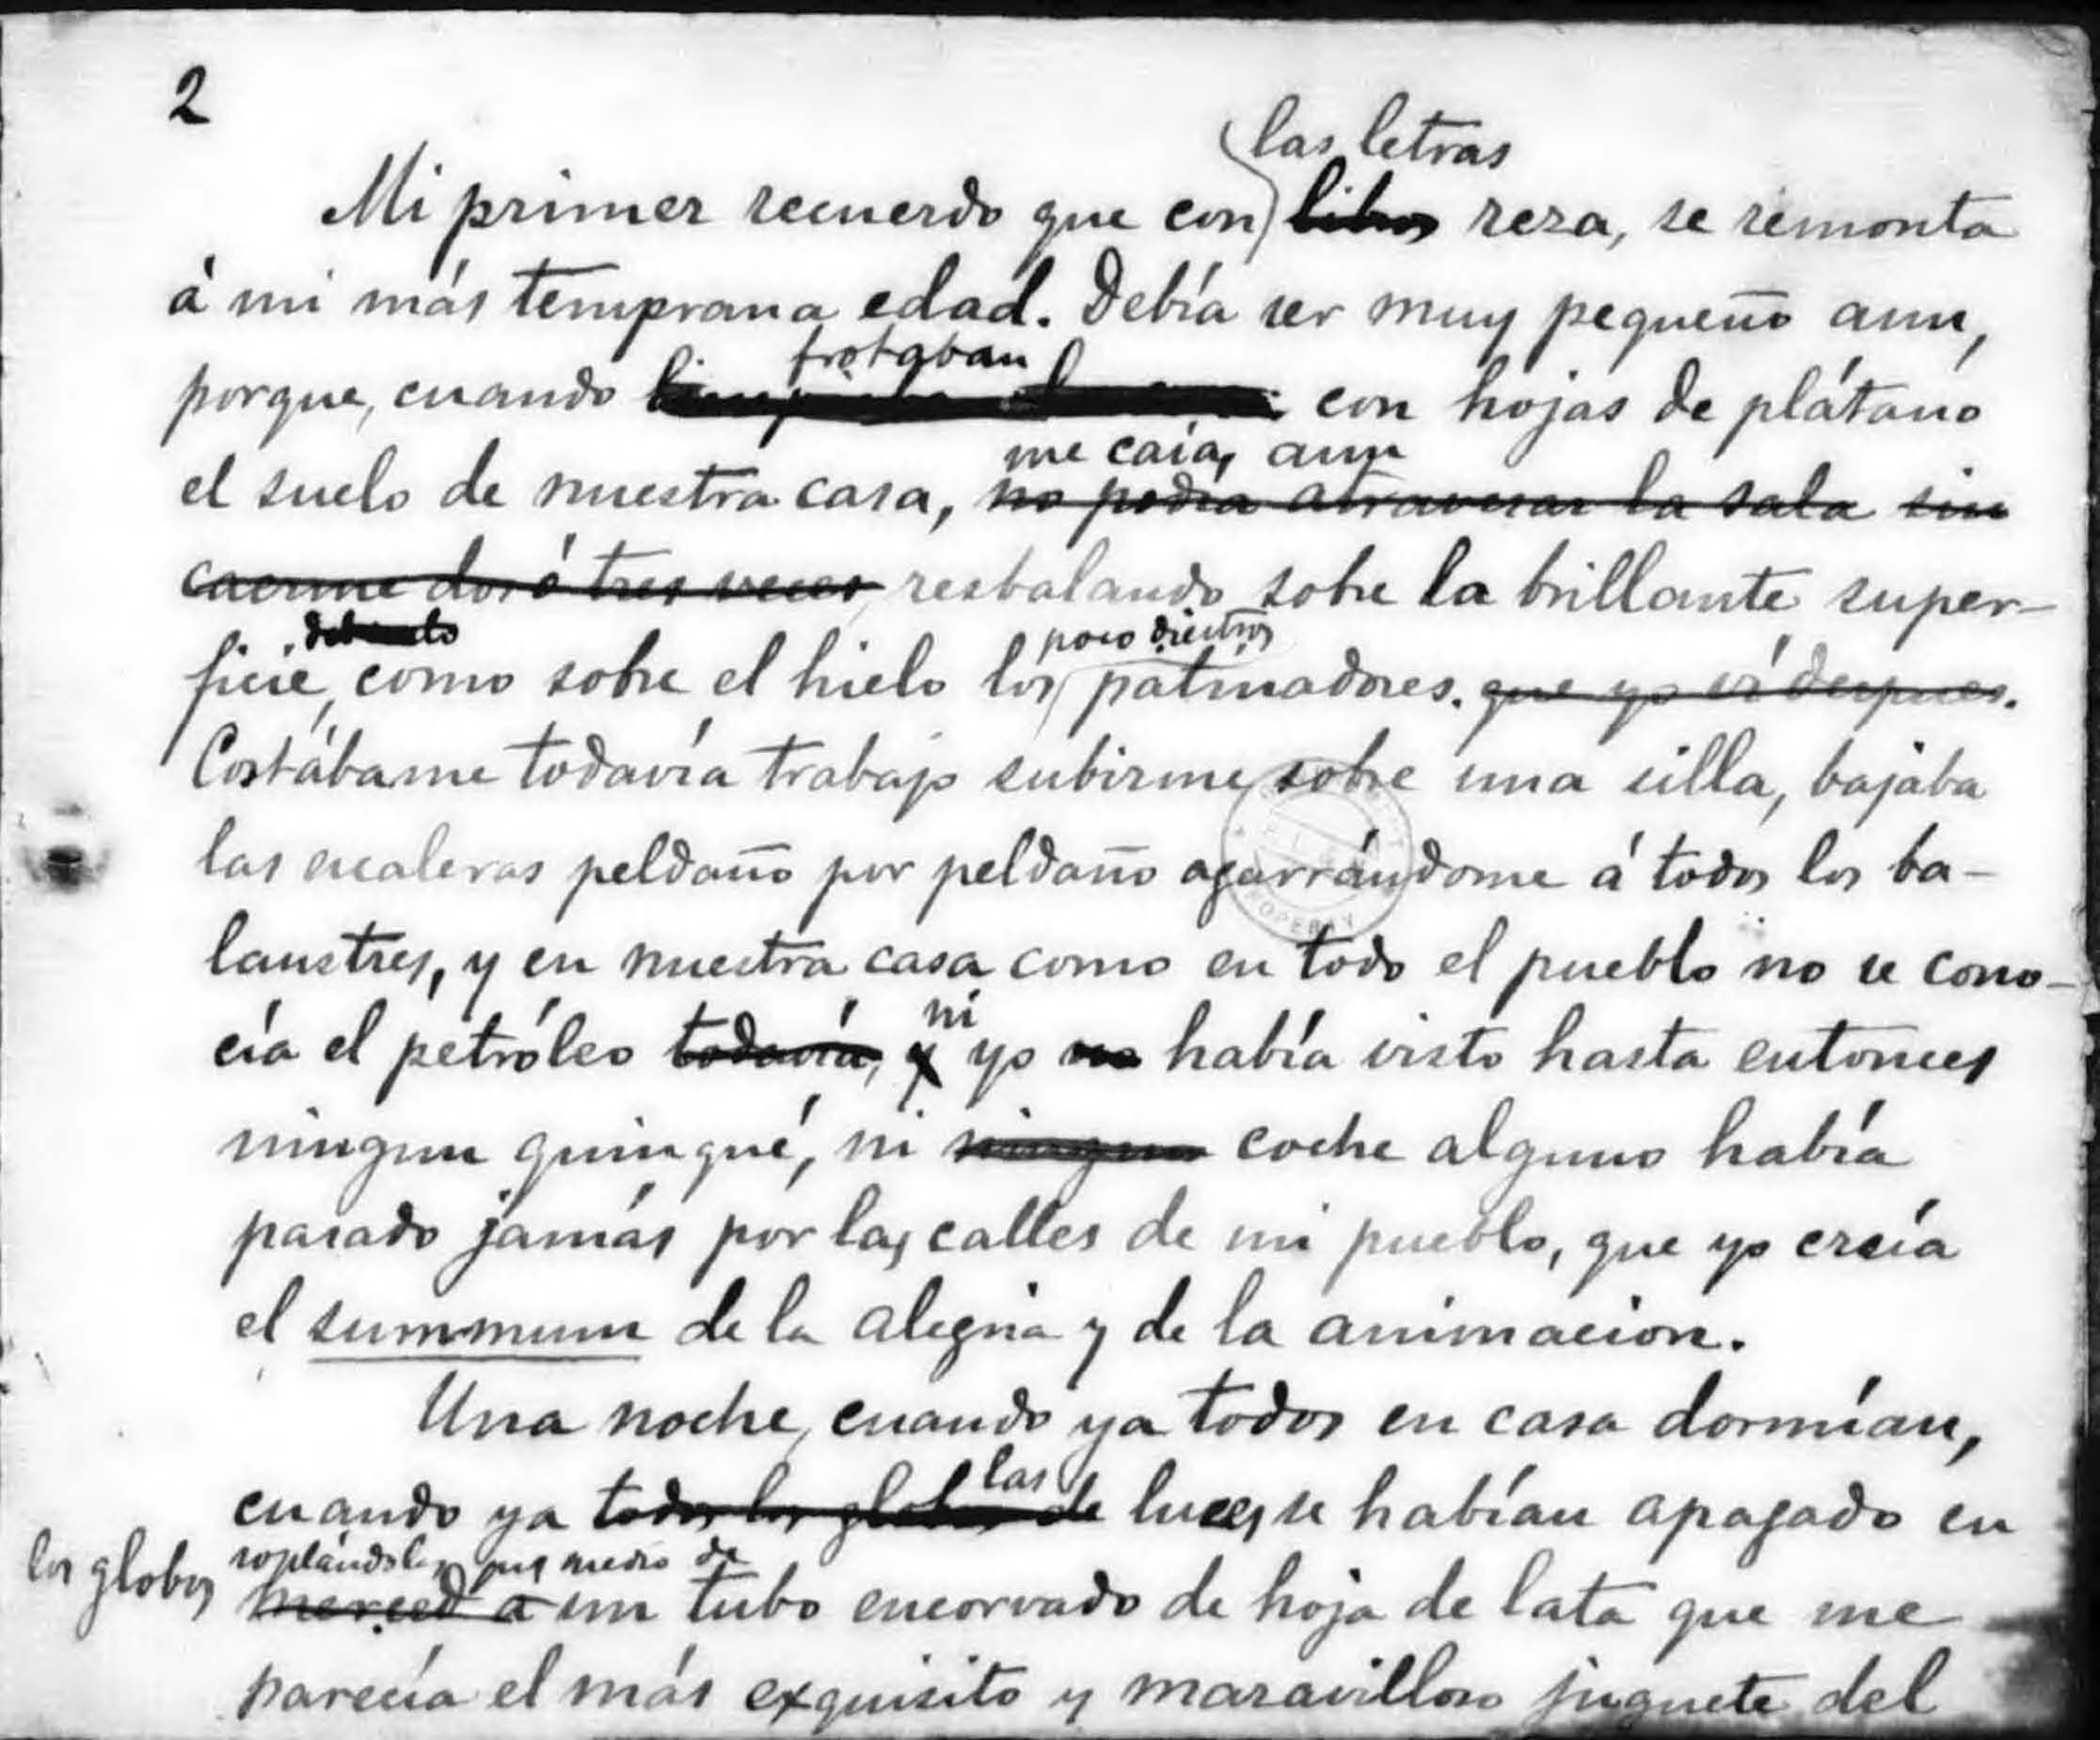 2
las letras
Mi primer recuerdo que con libros reza, se remonta
á mi más temprana edad. Debía ser muy pequeño aun,
frotaban
porque, cuando con hojas de plátano
me caía, aun
el suelo de nuestra casa, no podía atravesar la sala sin
caerme dos ó tres veces, resbalando sobre la brillante super-
poco diestros
ficie, como sobre el hielo los patinadores. que yo ví despues.
Costábame todavía trabajo subirme sobre una silla, bajaba
las escaleras peldaño por peldaño agarrándome á todos los ba-
laustres, y en nuestra casa como en todo el pueblo no se cono-
ni
cía el petróleo todavía, y yo no había visto hasta entonces
ningun quinqué, ni ningun coche alguno había
pasado jamás por las calles de mi pueblo, que yo creía
el summum de la alegria y de la animacion.
Una noche, cuando ya todos en casa dormían,
las
cuando ya todos los globos de luces se habían apagado en
los globos soplándolas por medio de
merced a un tubo encorvado de hoja de lata que me
parecía el más exquisito y maravilloso juguete del